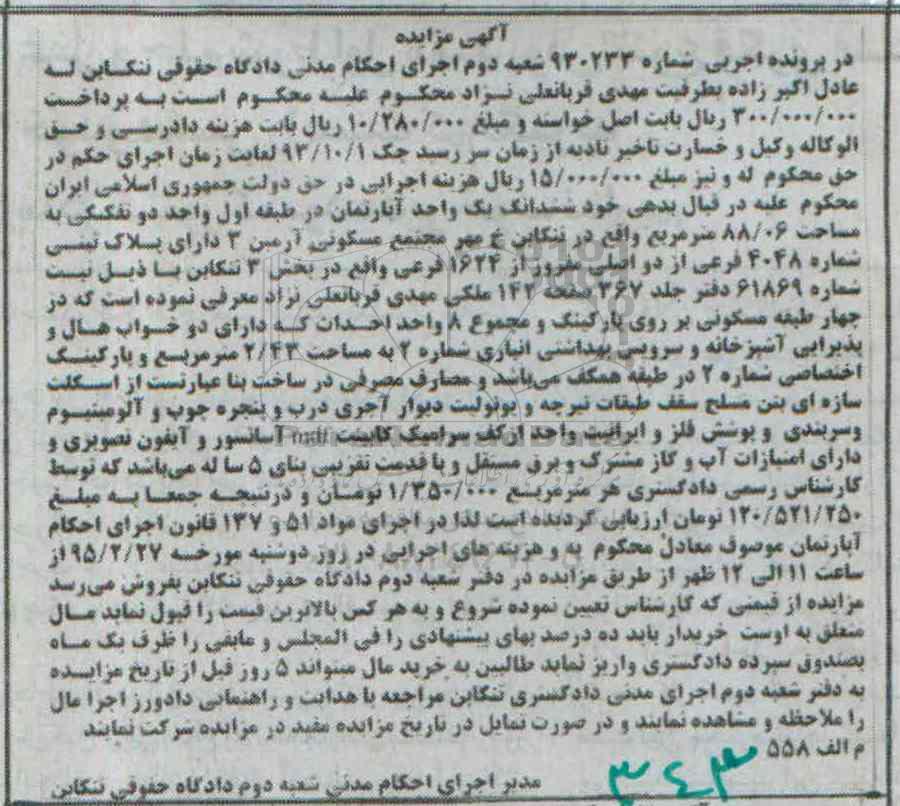 آگهی مزایده
در پرونده اجرایی شماره ۹۳۰۲۳۳ شعبه دوم اجرای احکام مدنی دادگاه حقوقی تنکابن له
عادل اکبر زاده بطرفیت مهدی قربانعلی نژاد محکوم علیه محکوم است به پرداخت
۳۰۰/۰۰۰/۰۰۰ ریال بابت اصل خواسته و مبلغ ۱۰/۲۸۰/۰۰۰ ریال بابت هزینه دادرسی و حق
الوکاله وکیل و خسارت تاخیر تادیه از زمان سر رسید چک ۹۳/۱۰/۱ لغایت زمان اجرای حکم در
حق محکوم له و نیز مبلغ ۱۵/۰۰۰/۰۰۰ ریال هزینه اجرایی در حق دولت جمهوری اسلامی ایران
محکوم علیه در قبال بدهی خود ششدانگ یک واحد آپارتمان در طبقه اول واحد دو تفکیکی به
مساحت ۸۸/۰۶ مترمربع واقع در تنکابن خ مهر مجتمع مسکونی آرمین ۳ دارای پلاک ثبتی
شماره ۴۰۴۸ فرعی از دو اصلی مفروز از ۱۶۲۴ فرعی واقع در بخش ۳ تنکابن با ذیل ثبت
شماره ۶۱۸۶۹ دفتر جلد ۳۶۷ صفحه ۱۴۲ ملکی مهدی قربانعلی نژاد معرفی نموده است که در
چهار طبقه مسکونی بر روی پارکینگ و مجموع ۸ واحد احداث که دارای دو خواب هال و
پذیرایی آشپزخانه و سرویس بهداشتی انباری شماره ۲ به مساحت ۲/۴۳ مترمربع و پارکینگ
اختصاصی شماره ۲ در طبقه همکف می‌باشد و مصارف مصرفی در ساخت بنا عبارتست از اسکلت
سازه ای بتن مسلح سقف طبقات تیرچه و یونولیت دیوار آجری درب و پنجره چوب و آلومینیوم
وسربندی و پوشش فلز و ایرانیت واحد ازکف سرامیک کابینت آسانسور و آیفون تصویری و
دارای امتیازات آب و گاز مشترک و برق مستقل و با قدمت تقریبی بنای ۵ سا له می‌باشد که توسط
کارشناس رسمی دادگستری هر مترمربع ۱/۳۵۰/۰۰۰ تومان و درنتیجه جمعا به مبلغ
۱۲۰/۵۲۱/۲۵۰ تومان ارزیابی گردیده است لذا در اجرای مواد ۵۱ و ۱۳۷ قانون اجرای احکام
آپارتمان موصوف معادل محکوم به و هزینه های اجرایی در روز دوشنبه مورخه ۹۵/۲/۲۷ از
ساعت ۱۱ الی ۱۲ ظهر از طریق مزایده در دفتر شعبه دوم دادگاه حقوقی تنکابن بفروش می‌رسد
مزایده از قیمتی که کارشناس تعیین نموده شروع و به هر کس بالاترین قیمت را قبول نماید مال
متعلق به اوست خریدار باید ده درصد بهای پیشنهادی را فی المجلس و مابقی را ظرف یک ماه
بصندوق سپرده دادگستری واریز نماید طالبین به خرید مال میتواند ۵ روز قبل از تاریخ مزایده
به دفتر شعبه دوم اجرای مدنی دادگستری تنکابن مراجعه با هدایت و راهنمایی دادورز اجرا مال
را ملاحظه و مشاهده نمایند و در صورت تمایل در تاریخ مزایده مفید در مزایده شرکت نمایند
م الف ۵۵۸
۳۴۳
مدیر اجرای احکام مدنی شعبه دوم دادگاه حقوقی تنکابن